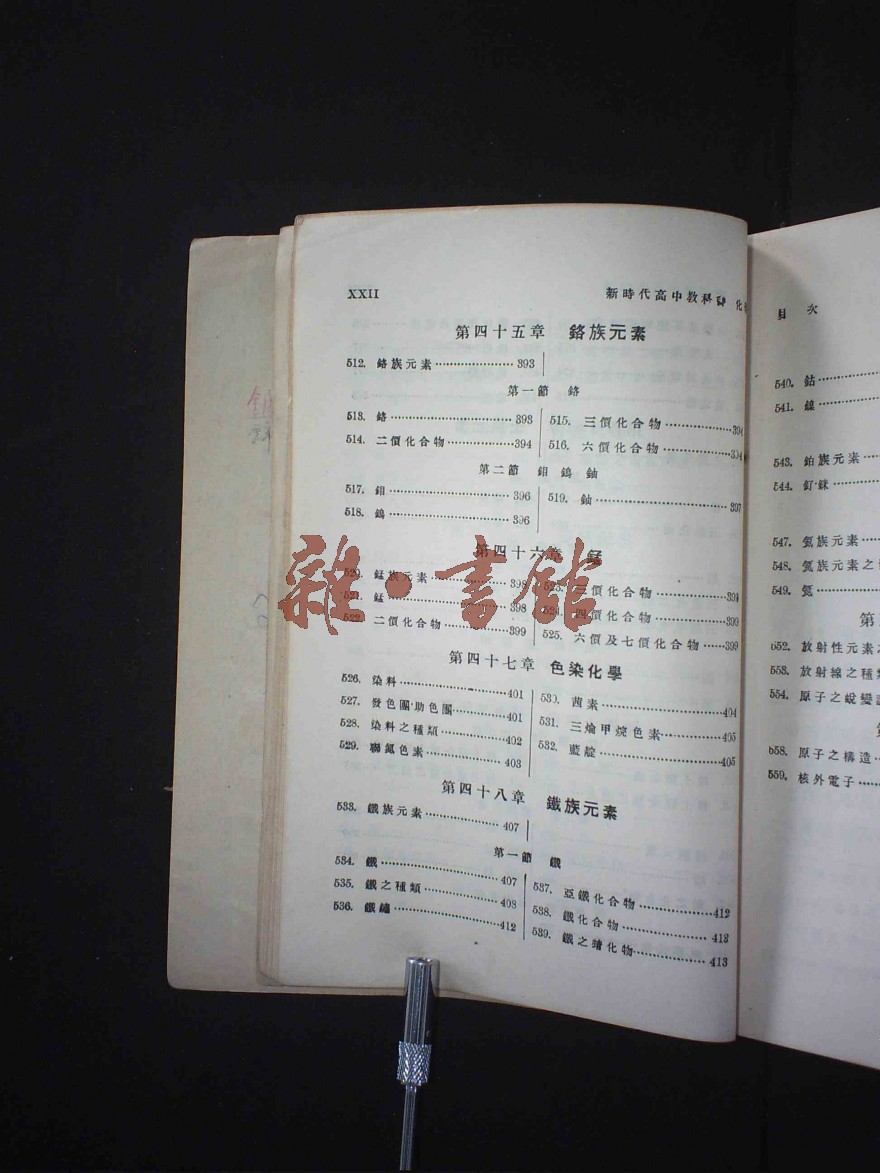 XXII
新時代高中教科書 化
第四十五章 鉻族元素
512. 鉻族元素 393
第一節 鉻
513. 鉻 393
514. 二價化合物 394
515. 三價化合物 394
516. 六價化合物 394
第二節 鉬 鎢 鈾
517. 鉬 396
518. 鎢 396
519. 鈾 397
第四十六章 錳
520. 錳族元素 398
521. 錳 398
522. 二價化合物 399
523. 三價化合物 399
524. 四價化合物 399
525. 六價及七價化合物 399
第四十七章 色染化學
526. 染料 401
527. 發色團·助色團 401
528. 染料之種類 402
529. 聯氮色素 403
530. 茜素 404
531. 三烷甲烷色素 405
532. 藍靛 405
第四十八章 鐵族元素
533. 鐵族元素 407
第一節 鐵
534. 鐵 407
535. 鐵之種類 408
536. 鐵鏽 412
537. 亞鐵化合物 412
538. 鐵化合物 413
539. 鐵之 化物 413
目 次
540. 鈷
541. 鎳
543. 鉑族元素
544. 釕·銤
547. 氦族元素
548. 氦族元素之
549. 氦
第
552. 放射性元素
553. 放射線之種類
554. 原子之蛻變
558. 原子之構造
559. 核外電子
雜·書館